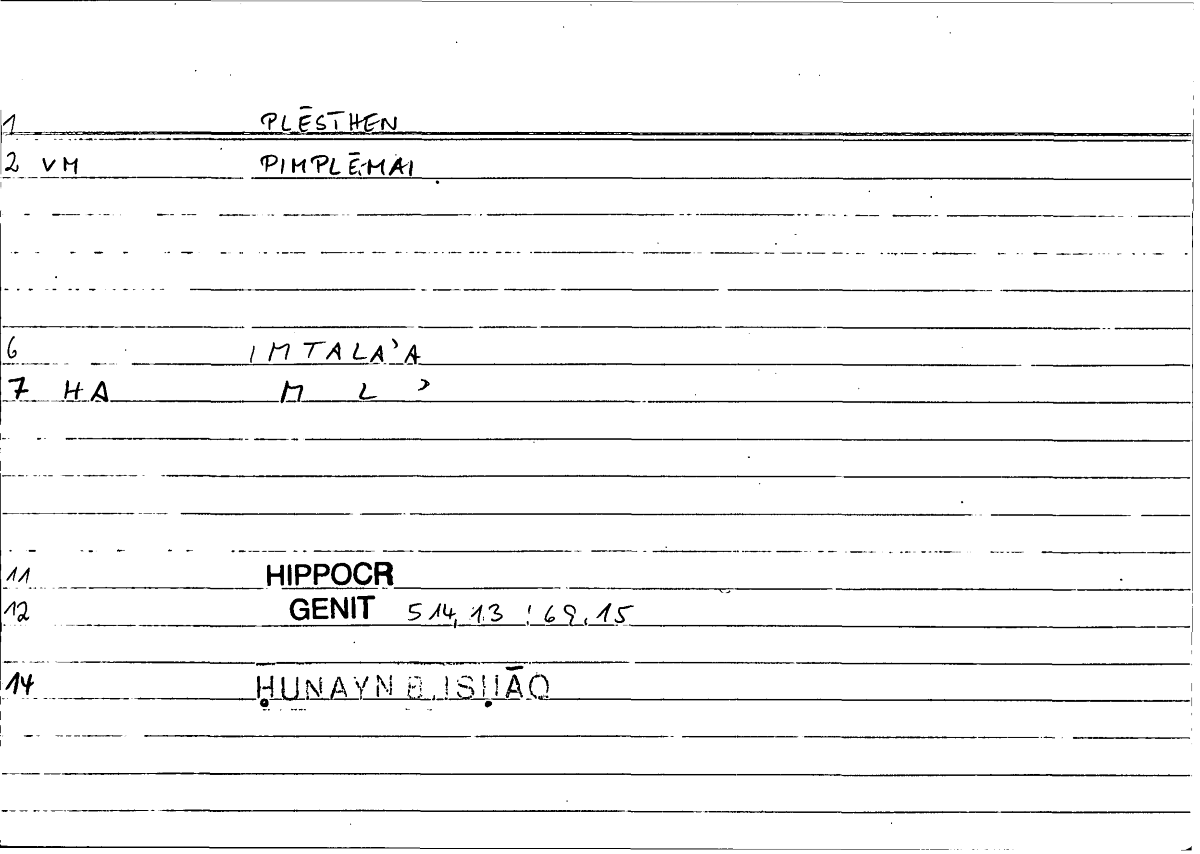 1 PLĒSTHEN
2 VM PIMPLĒMAI
6 IMTALAʾA
7 HA M L ʾ
11 HIPPOCR
12 GENIT 514,13 : 69,15
14 ḤUNAYN B. ISḤĀQ